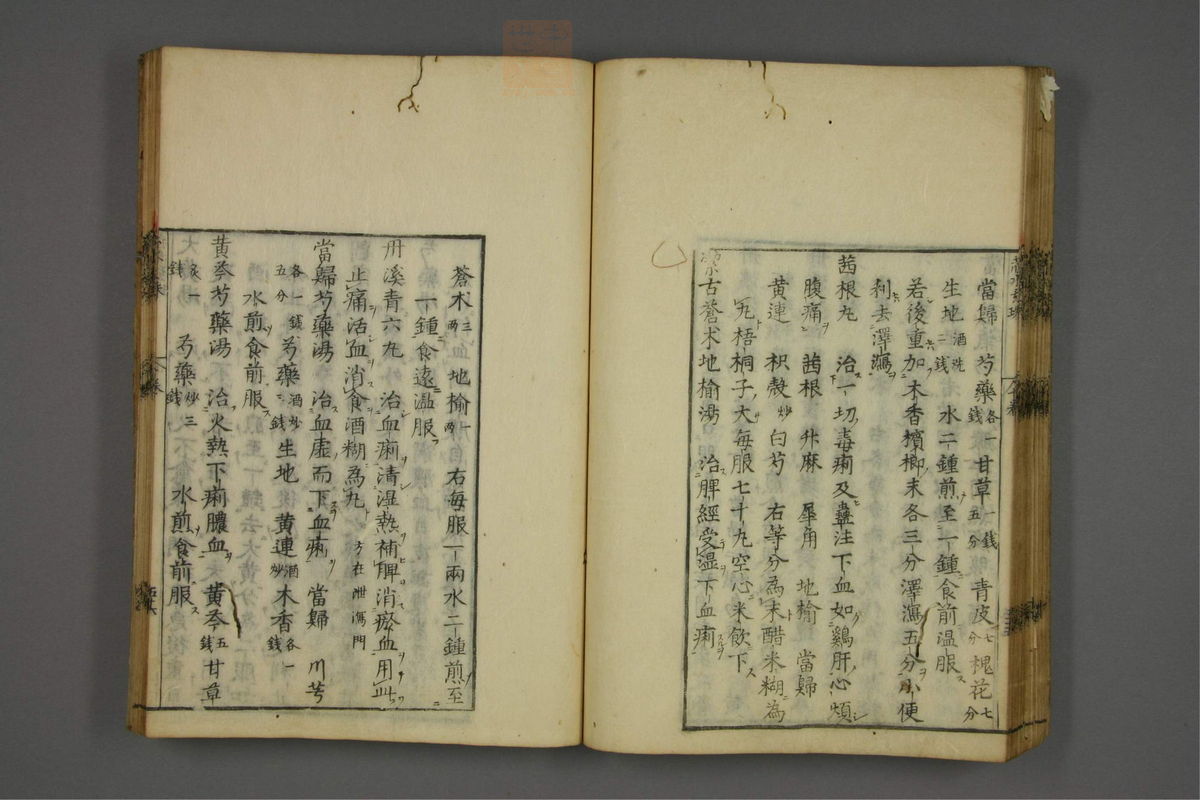 當歸 芍藥各一錢 甘草一錢五分 青皮七分 槐花七分
生地酒洗二錢 水二鍾煎至一鍾食前温服
若後重加木香檳榔末各三分澤瀉五分小便
利去澤瀉
茜根丸 治一切毒痢及蠱注下血如鷄肝心煩
腹痛 茜根 升麻 犀角 地榆 當歸
黄連 枳殼炒 白芍 右等分為末醋米糊為
丸梧桐子大每服七十丸空心米飲下
潔古蒼术地榆湯 治脾經受湿下血痢
蒼术三兩 地榆一兩 右每服一兩水二鍾煎至
一鍾食遠温服
丹溪青六丸 治血痢清湿熱補脾消瘀血用此
止痛活血消食酒糊為丸 方在泄瀉門
當歸芍藥湯 治血虛而下血痢 當歸 川芎
各一錢五分 芍藥酒炒二錢 生地 黄連酒炒 木香各一錢
水煎食前服
黄芩芍藥湯 治火熱下痢膿血 黄芩五錢 甘草
炙一錢 芍藥炒三錢 水煎食前服